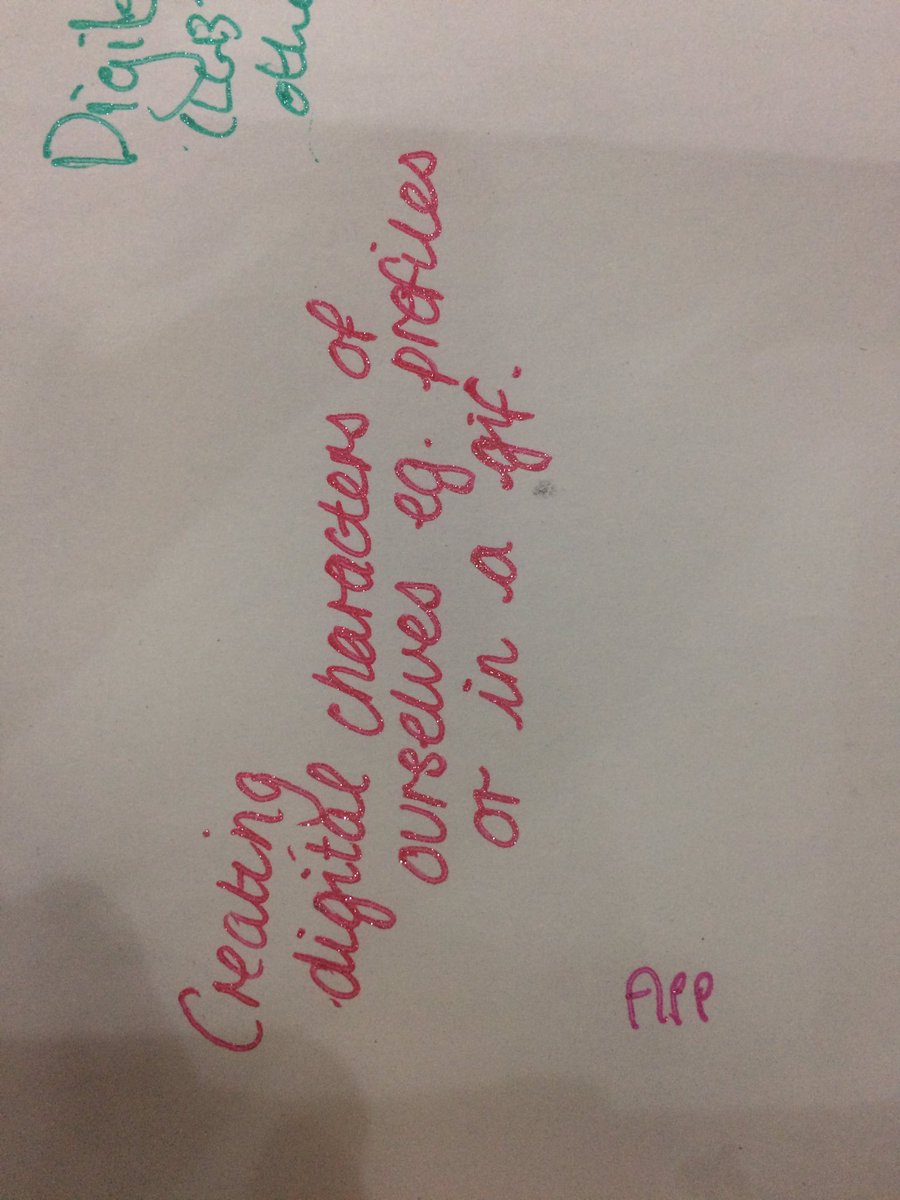 Creating
digital characters of
ourselves eg. profiles
or in a gif.
APP